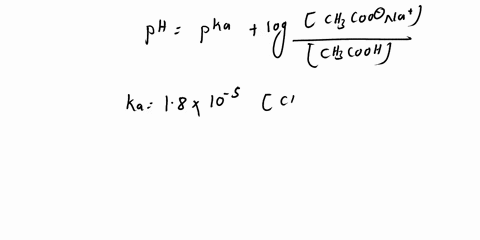 pH = pKa + log [CH3COO⊖Na+] / [CH3COOH]
Ka = 1.8 × 10⁻⁵ [C